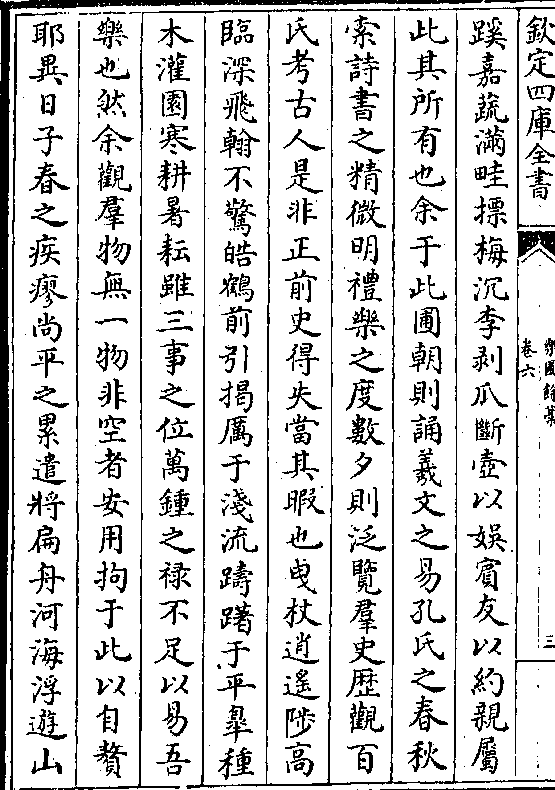 欽定四庫全書
樂圃餘藁
卷六
三
蹊嘉蔬滿畦摽梅沉李剥瓜斷壺以娯賓友以約親屬
此其所有也余于此圃朝則誦羲文之易孔氏之春秋
索詩書之精微明禮樂之度數夕則泛覽羣史歴觀百
氏考古人是非正前史得失當其暇也曳杖逍遙陟高
臨深飛翰不驚皓鶴前引揭厲于淺流躊躇于平臯種
木灌園寒耕暑耘雖三事之位萬鍾之禄不足以易吾
樂也然余觀羣物無一物非空者安用拘于此以自贅
耶異日子春之疾瘳尚平之累遣將扁舟河海浮遊山